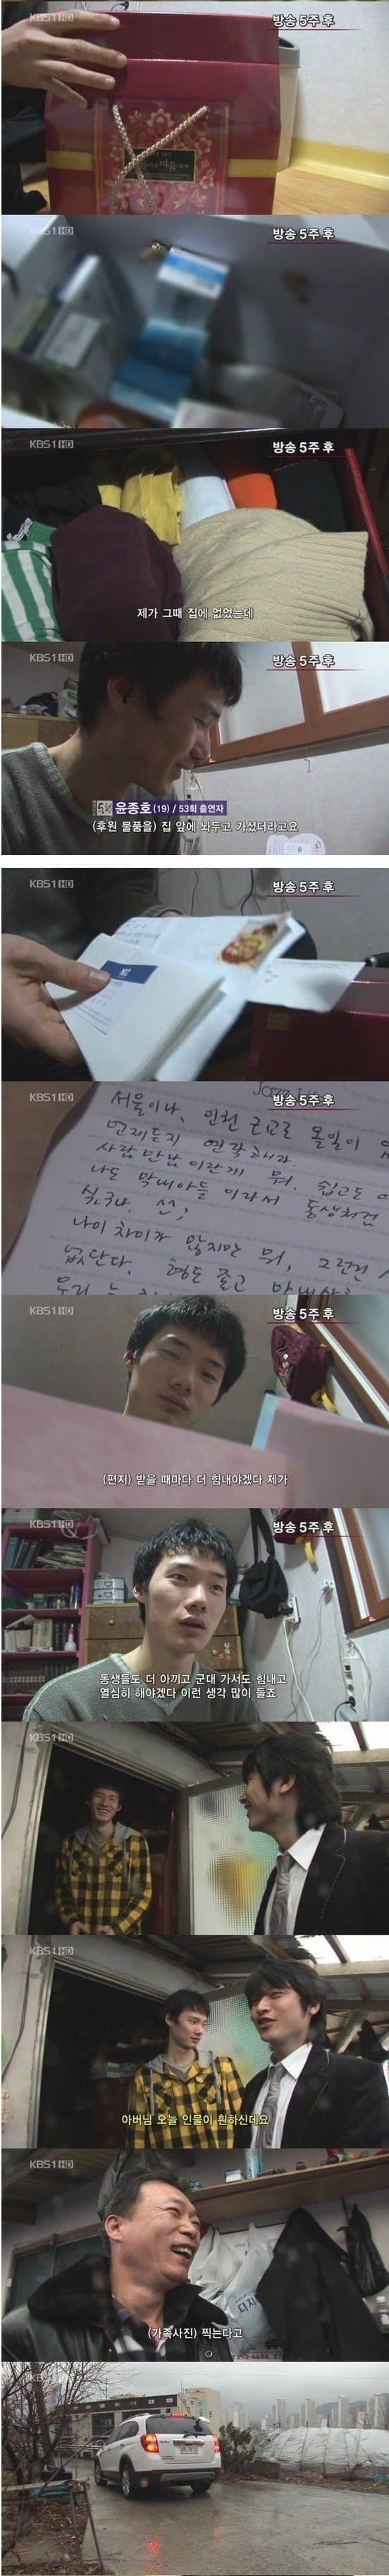 KBS1 HD
방송 5주 후
마음
KBS1 HD
방송 5주 후
KBS1 HD
방송 5주 후
제가 그때 집에 없었는데
KBS1 HD
방송 5주 후
윤종호(19) / 53회 출연자
(후원 물품을) 집 앞에 놔두고 가셨더라고요
KBS1 HD
방송 5주 후
KBS1 HD
방송 5주 후
서울이나, 인천 근교로 올일이
언제든지 연락해라.
사람 만남 이란게 뭐. 쉽고도
나도 막내아들 이라서 동생처럼
나이 차이가 많지만 뭐, 그런건
없단다. 형도 좋고
우리
KBS1 HD
방송 5주 후
(편지) 받을 때마다 더 힘내야겠다 제가
KBS1 HD
방송 5주 후
동생들도 더 아끼고 군대 가서도 힘내고
열심히 해야겠다 이런 생각 많이 들죠
KBS1 HD
KBS1 HD
아버님 오늘 인물이 훤하신데요
KBS1 HD
디지
(가족사진) 찍는다고